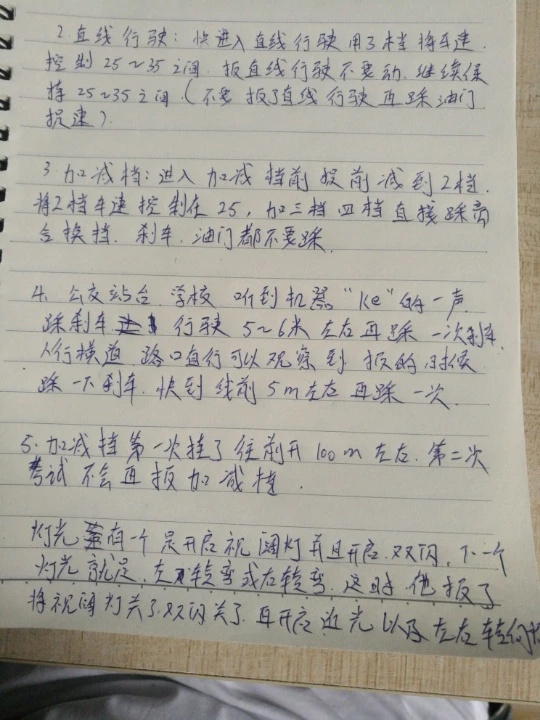 2 直线行驶：快进入直线行驶用3档将车速
控制25~35之间 报直线行驶不要动 继续保
持25~35之间（不要报了直线行驶再踩油门
提速）
3 加减档：进入加减挡前提前减到2档.
将2档车速控制在25，加三档四档直接踩离
合换挡. 刹车. 油门都不要踩.
4. 公交站台 学校 听到机器“ke”的一声
踩刹车 行驶5~6米左右再踩一次刹车.
人行横道 路口自行可以观察到 报的时候
踩一下刹车. 快到线前5m左右再踩一次.
5. 加减挡第一次挂了往前开100m左右. 第二次
考试不会再报加减档.
灯光 有一个是开启视阔灯并且开启双闪，下一个
灯光就是，左转弯或右转弯. 这时 他报了
将视阔灯关了双闪关了. 再开启近光以及左右转向